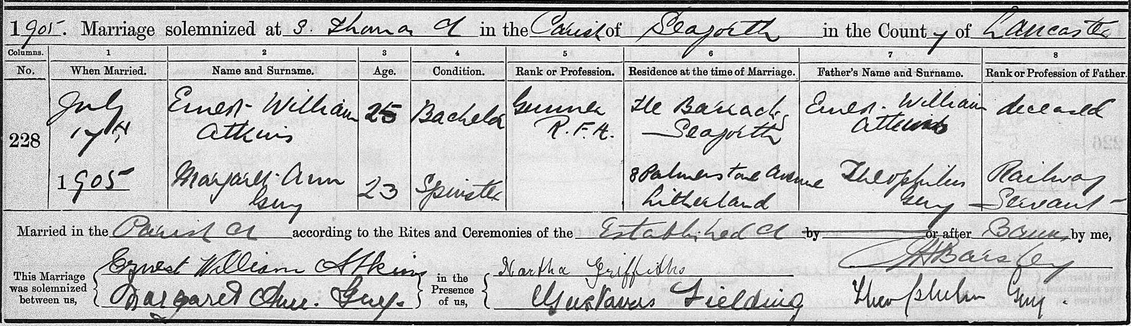 1905. Marriage solemnized at S. Thomas Ch in the Parish of Seaforth in the County of Lancaster
Columns. 1 2 3 4 5 6 7 8
No. When Married. Name and Surname. Age. Condition. Rank or Profession. Residence at the time of Marriage. Father's Name and Surname. Rank or Profession of Father.
July Ernest William 25 Bachelor Gunner The Barracks Ernest William deceased
17th Atkins R.F.A. Seaforth Atkins
228
1905 Margaret Ann 23 Spinster 8 Palmerstone Avenue Theophilus Railway
Guy Litherland Guy Servant
Married in the Parish Ch according to the Rites and Ceremonies of the Established Ch by or after Banns by me,
This Marriage was solemnized between us, Ernest William Atkins in the Presence of us, Martha Griffiths
Margaret Ann Guy Gustavus Fielding Theophilus Guy